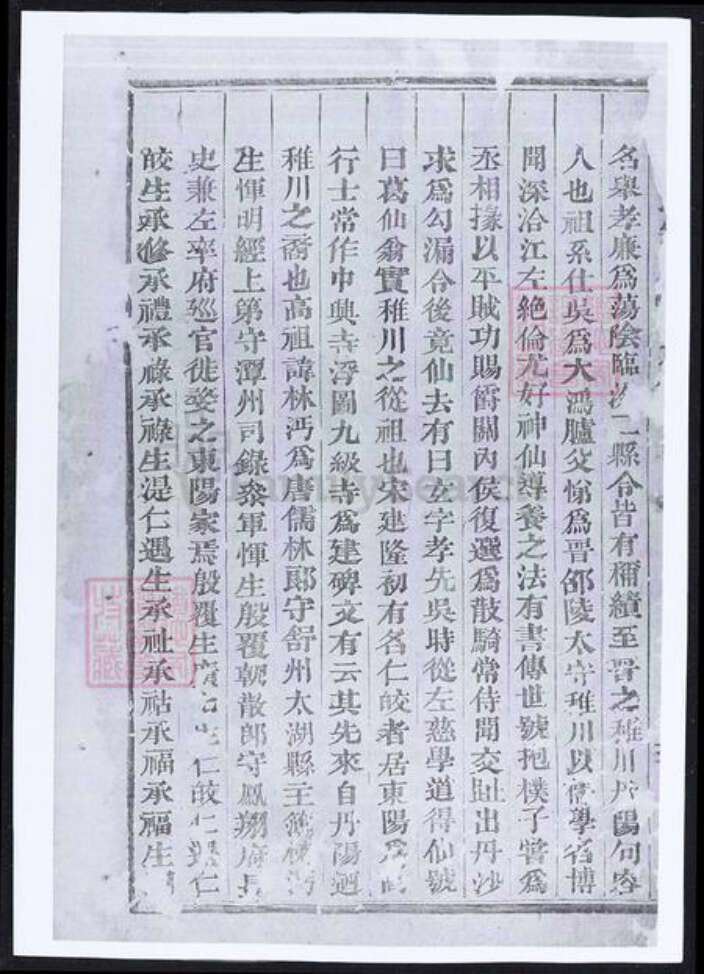 名舉孝廉爲蕩陰臨汾二縣令皆有稱績至晋之稚川丹陽句容
人也祖系仕吳爲大鴻臚父悌爲晋邵陵太守稚川以儒學名博
聞深洽江左絶倫尤好神仙導養之法有書傳世號抱樸子嘗爲
丞相掾以平賊功賜爵關內侯復選爲散騎常侍聞交趾出丹沙
求爲勾漏令後竟仙去有曰玄字孝先吳時從左慈學道得仙號
曰葛仙翁實稚川之從祖也宋建隆初有名仁皎者居東陽爲
行士常作中興寺浮圖九級寺爲建碑文有云其先來自丹陽迺
稚川之裔也高祖諱林沔爲唐儒林郎守舒州太湖縣主簿
生惲明經上第守潭州司錄叅軍惲生殷覆朝散郎守鳳翔府長
史兼左率府廵官徙婺之東陽家焉殷覆生 仁皎仁 仁
皎生承修承禮承祿承祿生湜仁遇生承祉承祜承福承福生
特藏